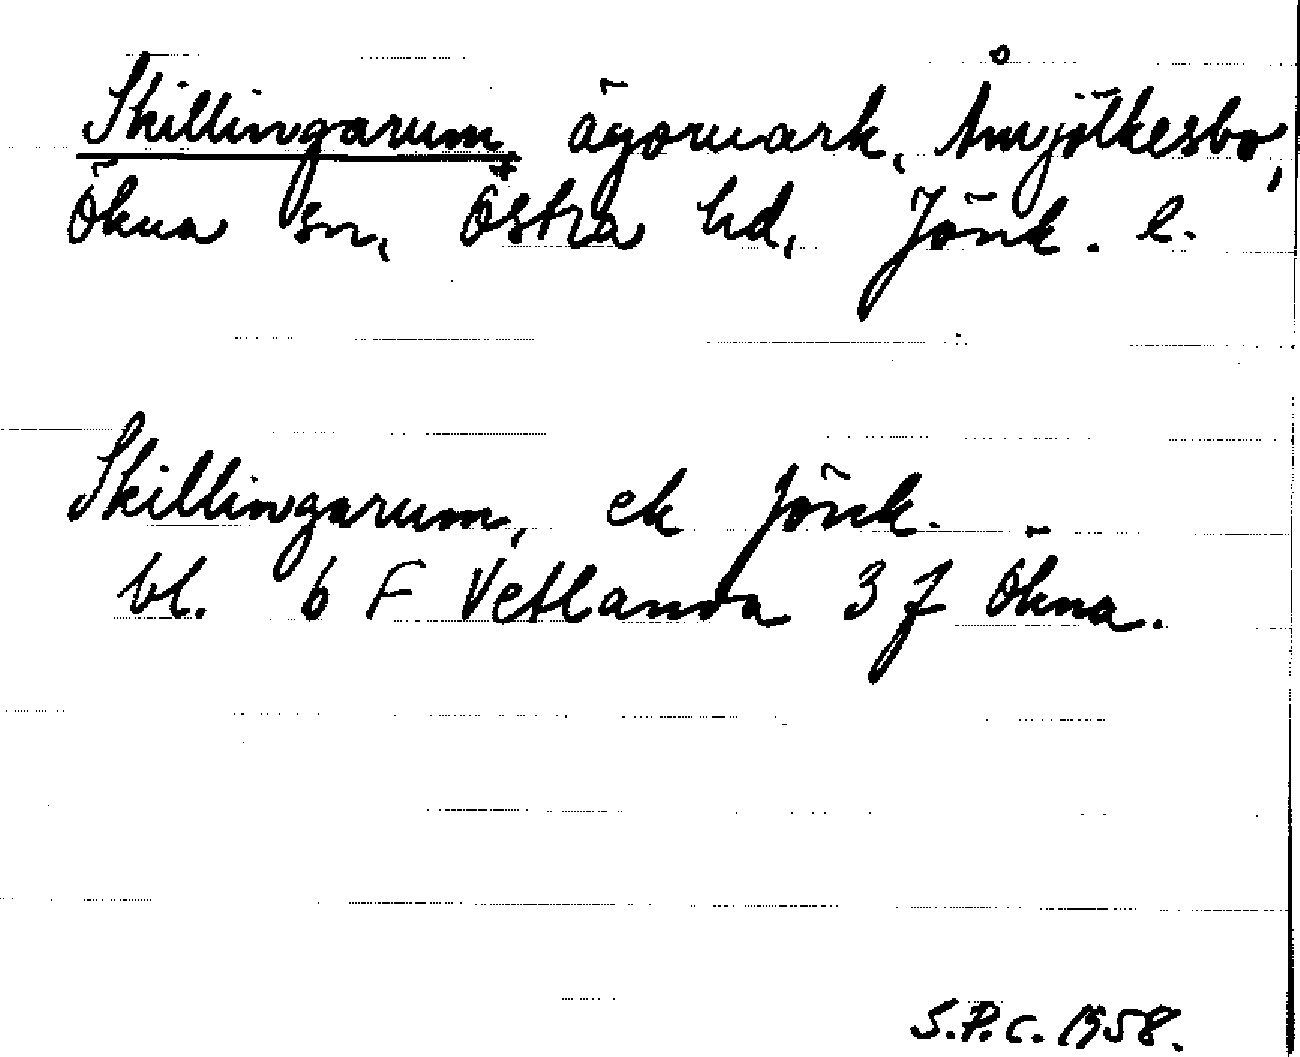 Skillingarum, ägomark, Åmjölkesbo,
Ökna sn, Östra hd, Jönk. l.
Skillingarum, ek Jönk.
bl. 6 F Vetlanda 3 f Ökna.
S.P.C. 1958.